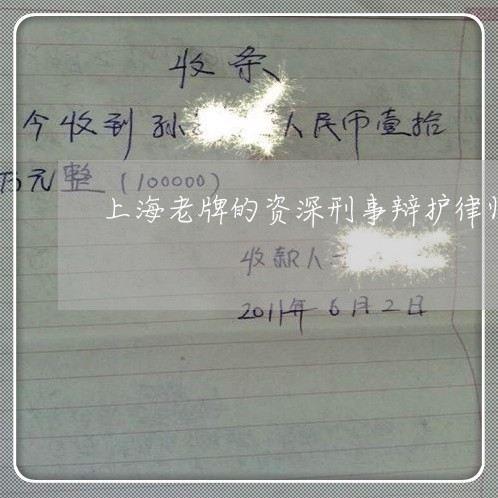 收条
今收到孙 人民币壹拾
万元整(100000)
上海老牌的资深刑事辩护律
收款人
2011年6月2日